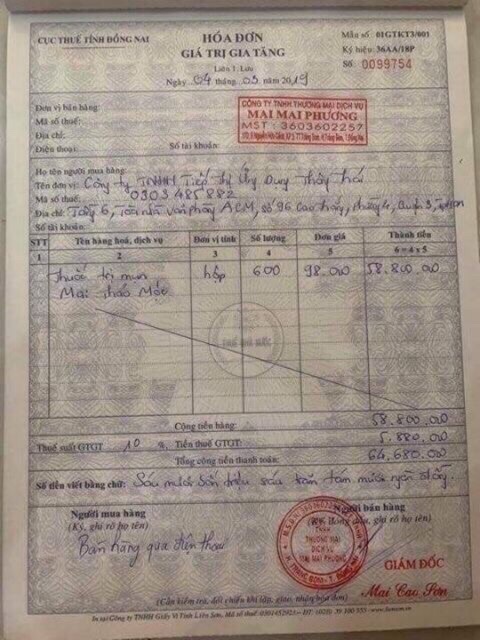 CỤC THUẾ TỈNH ĐỒNG NAI
HÓA ĐƠN
GIÁ TRỊ GIA TĂNG
Liên 1: Lưu
Ngày 04 tháng 03 năm 2019
Mẫu số: 01GTKT3/001
Ký hiệu: 36AA/18P
Số 0099754
Đơn vị bán hàng:
CÔNG TY TNHH THƯƠNG MẠI DỊCH VỤ
MAI MAI PHƯƠNG
MST: 3603602257
Mã số thuế:
Địa chỉ:
Điện thoại: Số tài khoản:
Họ tên người mua hàng:
Tên đơn vị: Công ty TNHH Tiếp Thị Duy Thủy Mã số thuế: 0303485882
Địa chỉ: Tầng 6, Tòa nhà văn phòng ACM, số 96 Cao Thắng, phường 4, Quận 3,
Số tài khoản:
STT Tên hàng hoá, dịch vụ Đơn vị tính Số lượng Đơn giá Thành tiền
1 2 3 4 5 6 = 4 x 5
Thuốc trị mụn hộp 600 98.000 58.800.000
Mai Thảo Mộc
Cộng tiền hàng: 58.800.000
Thuế suất GTGT: 10 % Tiền thuế GTGT: 5.880.000
Tổng cộng tiền thanh toán: 64.680.000
Số tiền viết bằng chữ: Sáu mươi bốn triệu sáu trăm tám mươi ngàn đồng.
Người mua hàng Người bán hàng
(Ký, ghi rõ họ tên) đóng dấu, ghi rõ họ tên)
Bán hàng qua điện thoại
TNHH
THƯƠNG MẠI
DỊCH VỤ
MAI MAI PHƯƠNG
GIÁM ĐỐC
Mai Cao Sơn
(Cần kiểm tra, đối chiếu khi lập, giao, nhận hóa đơn)
In tại Công ty TNHH Giấy Vi Tính Liên Sơn